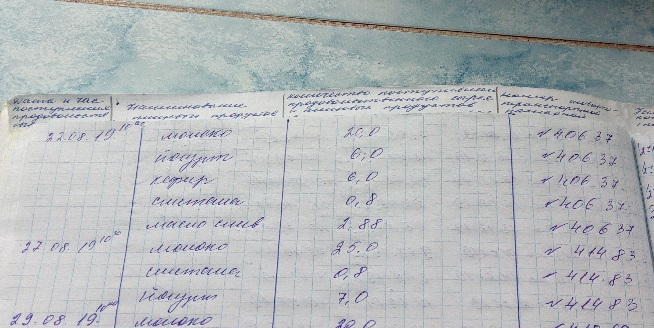 Дата и час поступления продовольств
Наименование пищевых продуктов
количество поступившего продовольственного сырья пищевых продуктов
номер товарно транспортной накладной
22.08.19 10 00 молоко 20,0 № 406 37
йогурт 6,0 № 406 37
кефир 6,0 № 406 37
сметана 0,8 № 406 37
масло слив 2,88 № 406 37
27.08.19 10 00 молоко 25,0 № 414 83
сметана 0,8 № 414 83
йогурт 7,0 № 414 83
29.08.19 молоко 20,0